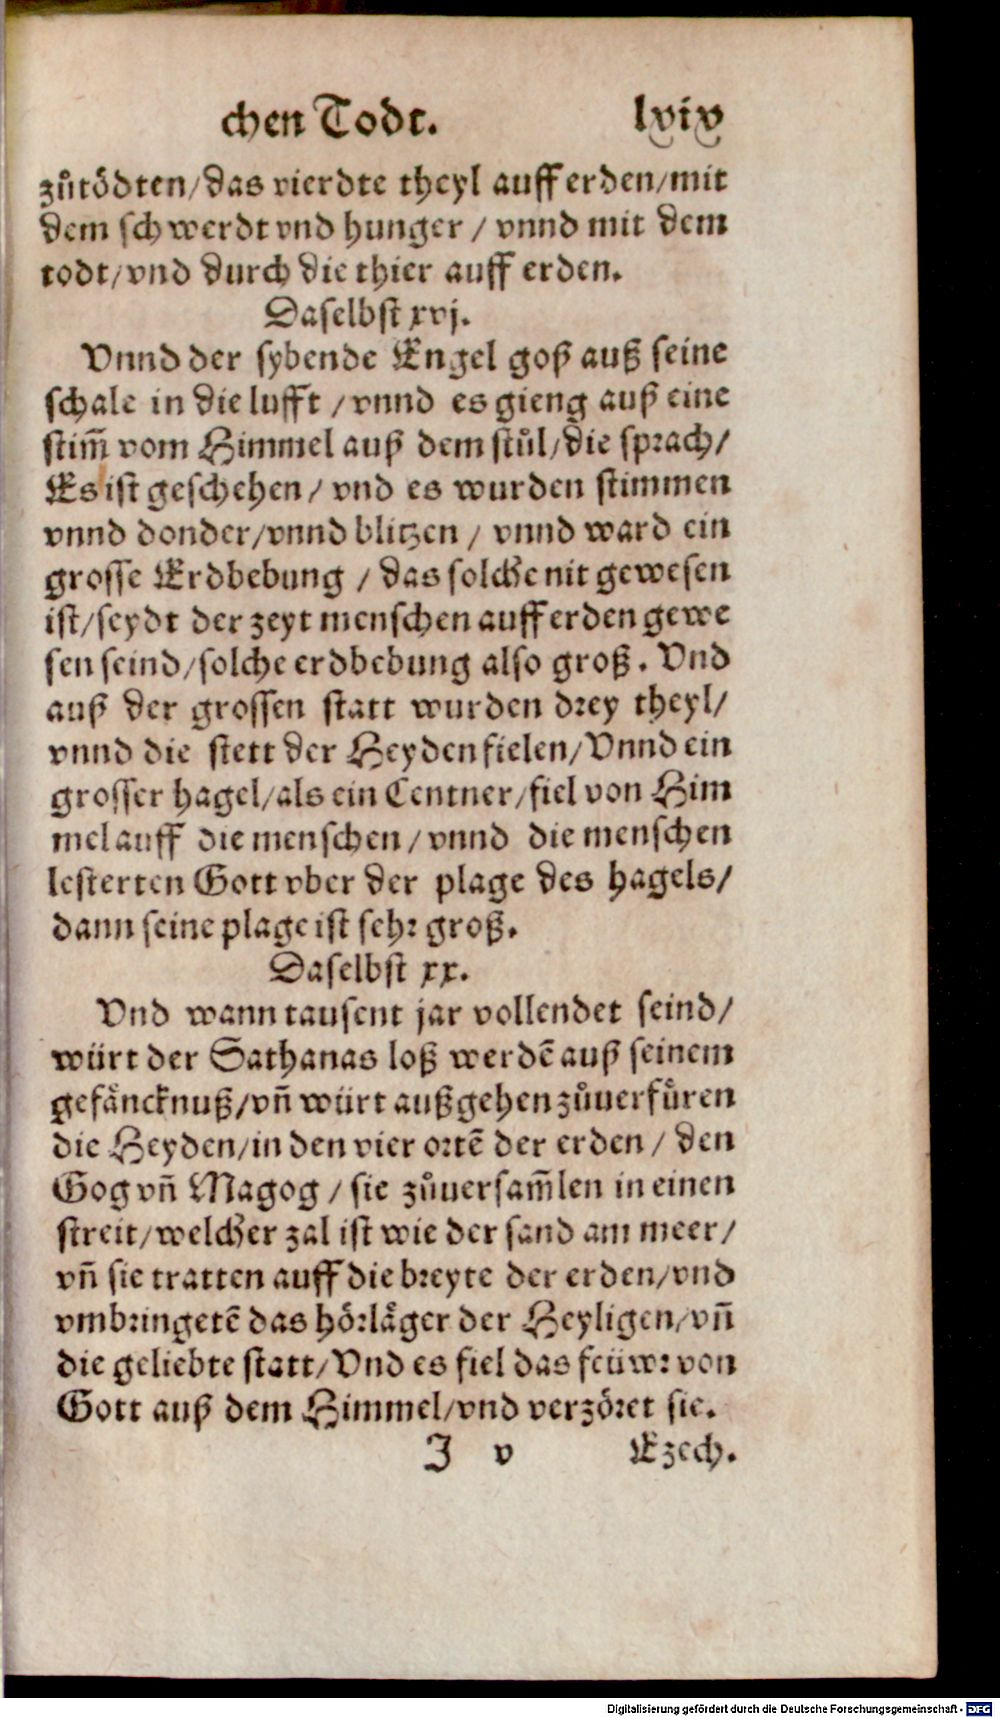 chen Todt. lxix
zuͦtoͤdten/das vierdte theyl auff erden/mit
dem schwerdt vnd hunger / vnnd mit dem
todt/vnd durch die thier auff erden.
Daselbst xvj.
Vnnd der sybende Engel goß auß seine
schale in die lufft / vnnd es gieng auß eine
stim̄ vom Himmel auß dem stuͦl/die sprach/
Es ist geschehen / vnd es wurden stimmen
vnnd donder/vnnd blitzen / vnnd ward ein
grosse Erdbebung / das solche nit gewesen
ist/seydt der zeyt menschen auff erden gewe
sen seind/solche erdbebung also groß. Vnd
auß der grossen statt wurden drey theyl/
vnnd die stett der Heyden fielen/Vnnd ein
grosser hagel/als ein Centner/fiel von Him
mel auff die menschen / vnnd die menschen
lesterten Gott vber der plage des hagels/
dann seine plage ist sehr groß.
Daselbst xx.
Vnd wann tausent jar vollendet seind/
würt der Sathanas loß werdē auß seinem
gefaͤncknuß/vn̄ würt außgehen zuͦuerfuͤren
die Heyden/in den vier ortē der erden / den
Gog vn̄ Magog / sie zuͦuersam̄len in einen
streit/welcher zal ist wie der sand am meer/
vn̄ sie tratten auff die breyte der erden/vnd
vmbringetē das hoͤrlaͤger der Heyligen/vn̄
die geliebte statt/Vnd es fiel das feüwr von
Gott auß dem Himmel/vnd verzoͤret sie.
I v Ezech.
Digitalisierung gefördert durch die Deutsche Forschungsgemeinschaft - DFG